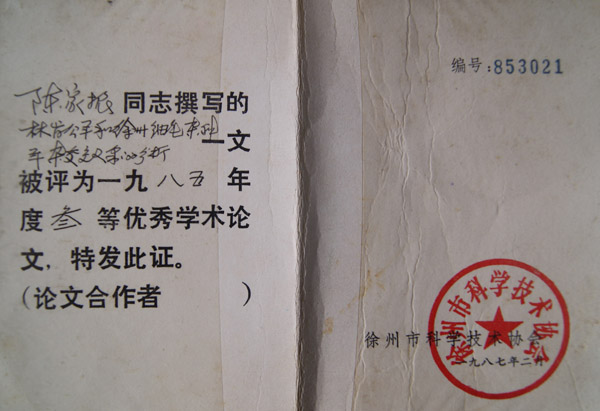 陈家振同志撰写的
林肯公羊和徐州细毛 一文
杂交效果的分析
被评为一九八五年
度叁等优秀学术论
文，特发此证。
（论文合作者 ）
编号：853021
徐州市科学技术协会
一九八七年二月
徐州市科学技术协会